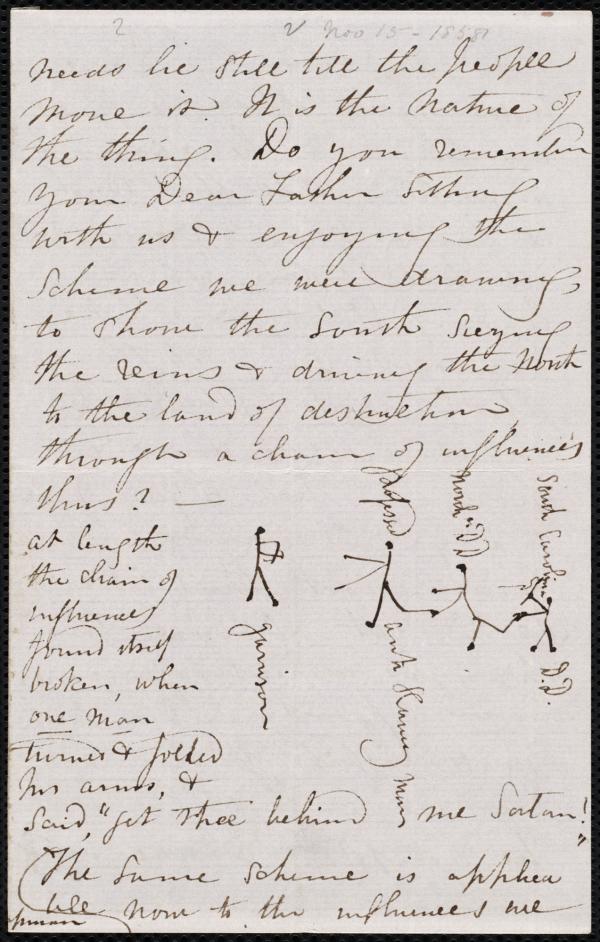 2 2 Nov 15 - 1858?
needs lie still till the people
move it. It is the nature of
the thing. Do you remember
your Dear Father sitting
with us & enjoying the
scheme we were drawing,
to show the South siezing
the reins & driving the North
to the land of destruction,
through a chain of influences
thus? —
at length
the chain of
influences
found itself
broken, when
one man
turned & folded
his arms, &
said, "get thee behind me Satan!"
(The same scheme is applica
ble now to the influences we
Garrison
professed
anti Slavery Man
North D.D
South Carolina
D.D.